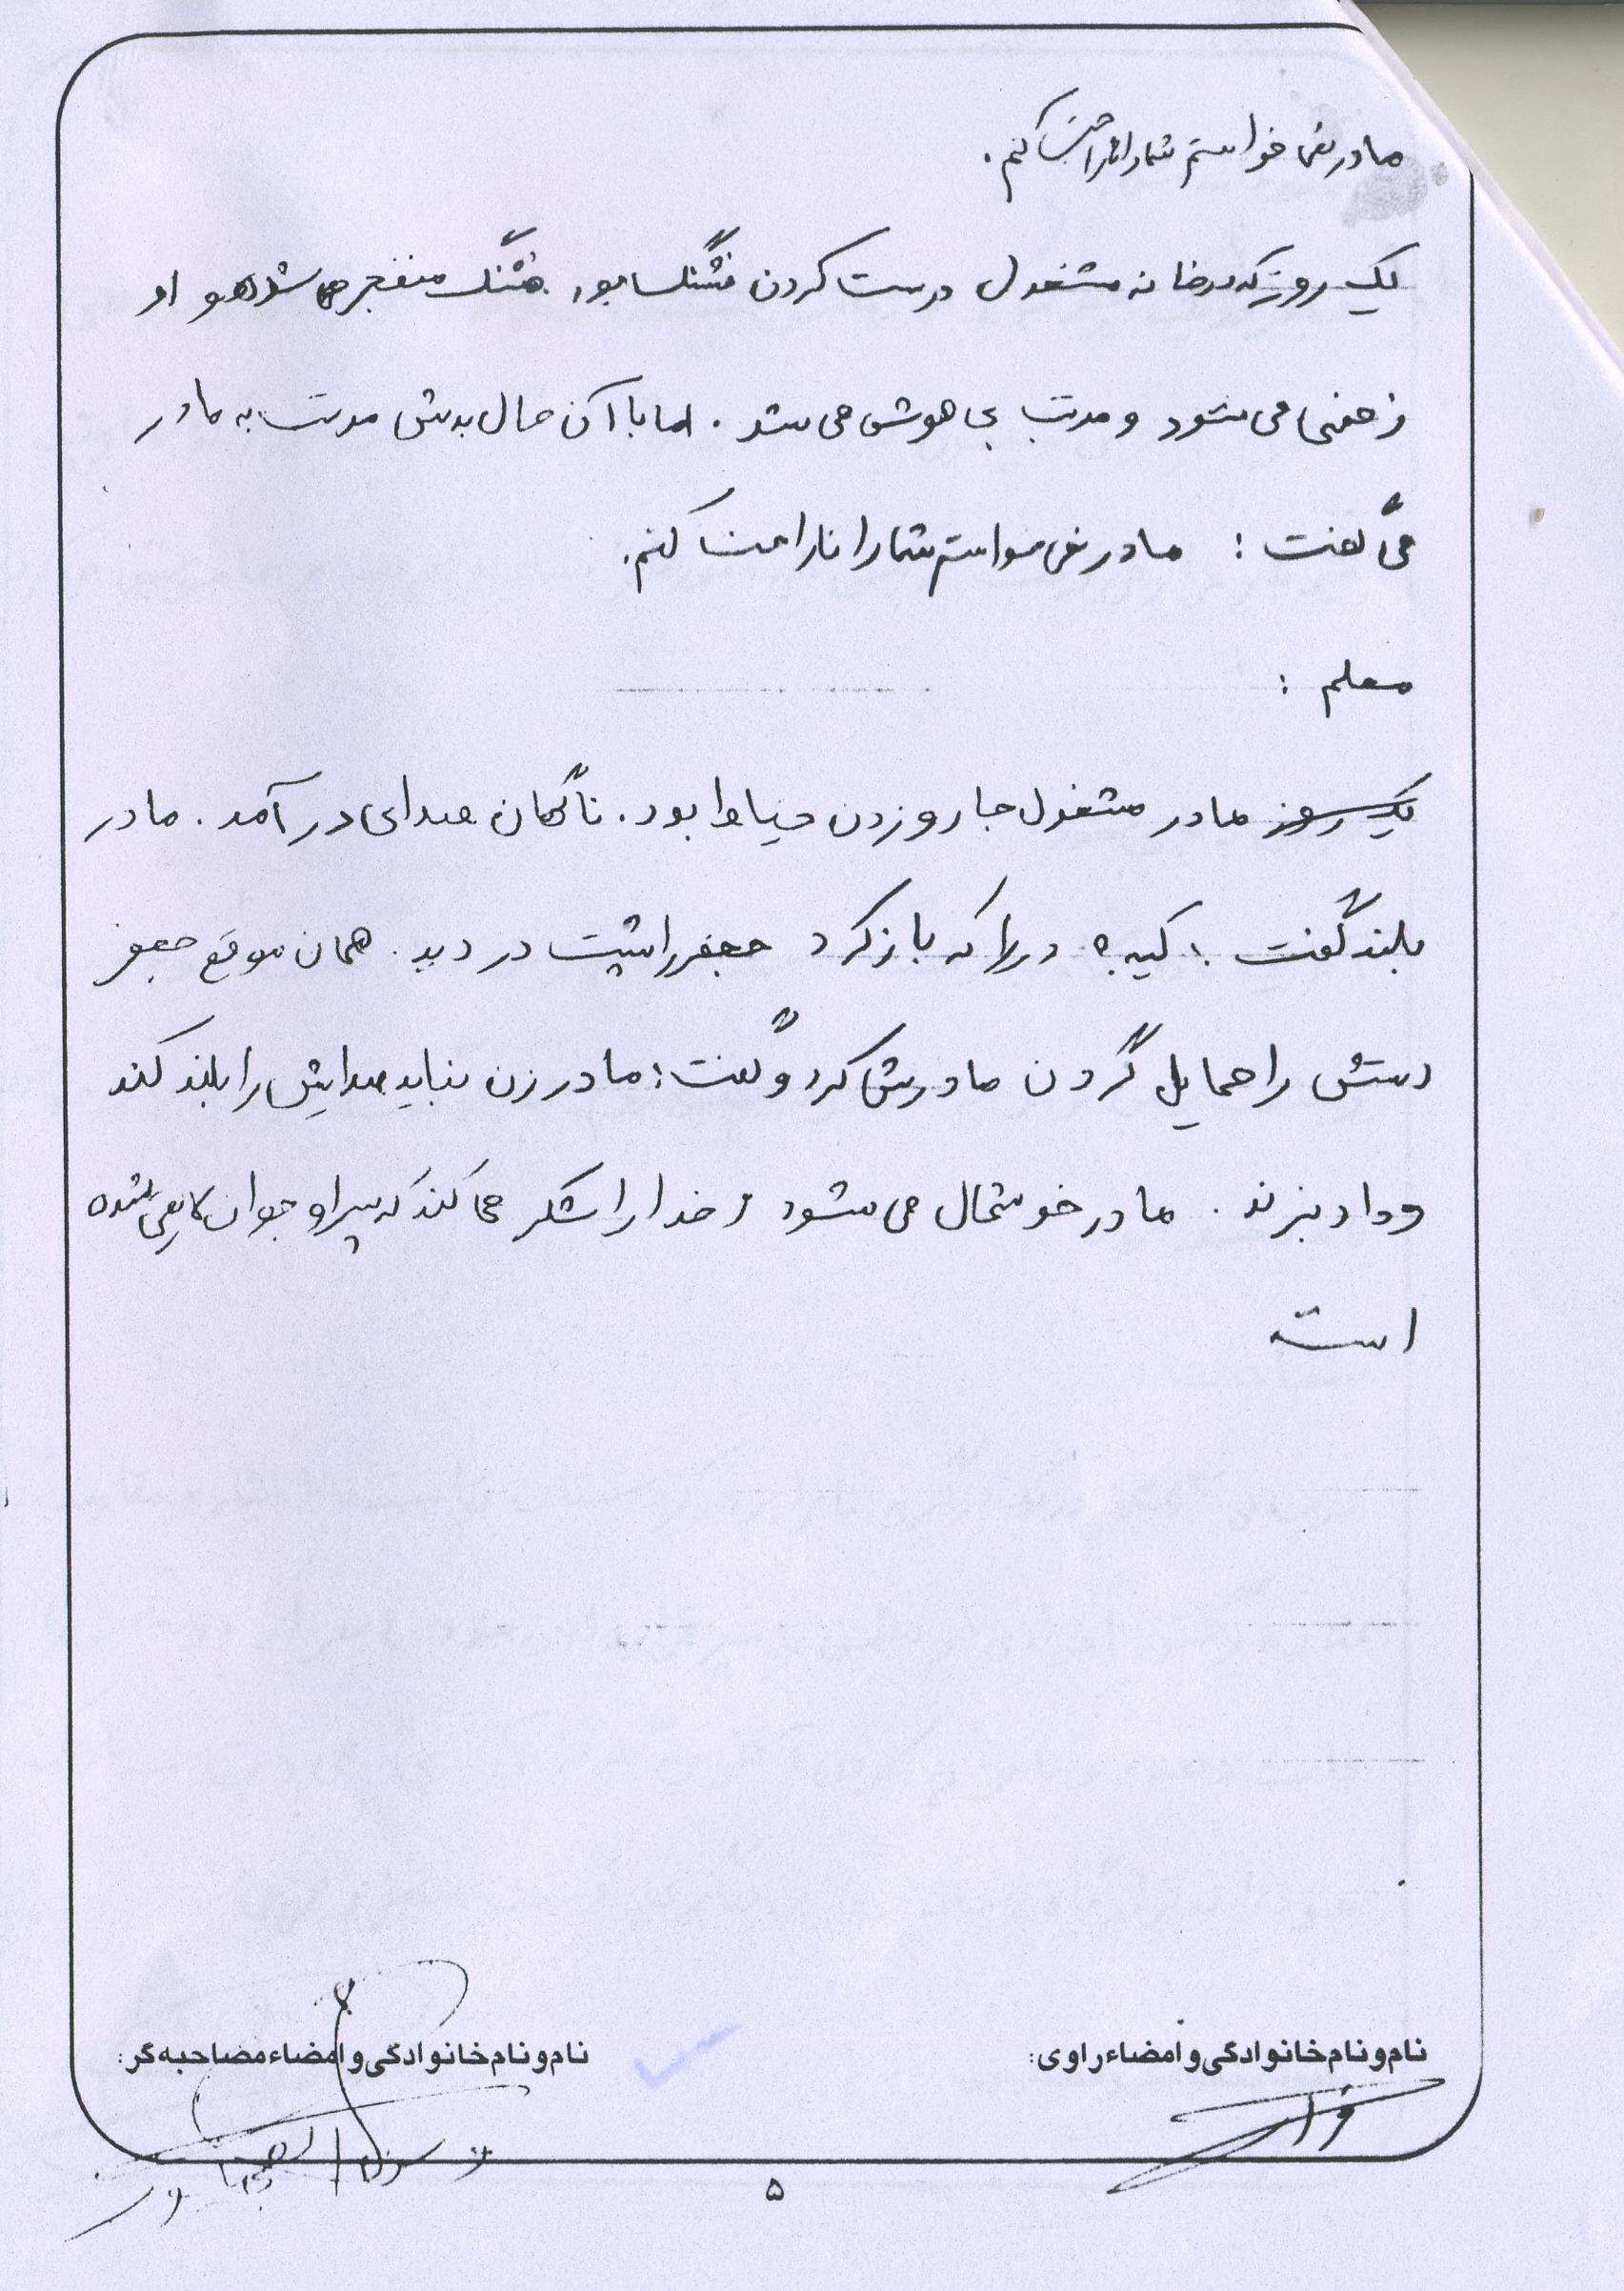 مادر نمی خواستم شما را ناراحت کنم.
یک روز که در خانه مشغول درست کردن فشنگ بود. فشنگ منفجر می شود و او
زخمی می شود و مدت بی هوش می شد. اما با آن حال بدش مدت به مادر
می گفت: مادر نمی خواستم شما را ناراحت کنم.
معلم:
یک روز مادر مشغول جارو زدن حیاط بود. ناگهان صدای در آمد. مادر
بلند گفت: کیه؟ در را که باز کرد جعفر را پشت در دید. همان موقع جعفر
دستش را حمایل گردن مادرش کرد و گفت: مادر زن نباید صدایش را بلند کند
و داد بزند. مادر خوشحال می شود و خدا را شکر می کند که پسر او جوان شده
است
نام و نام خانوادگی و امضاء راوی:
نام و نام خانوادگی و امضاء مصاحبه گر:
۵